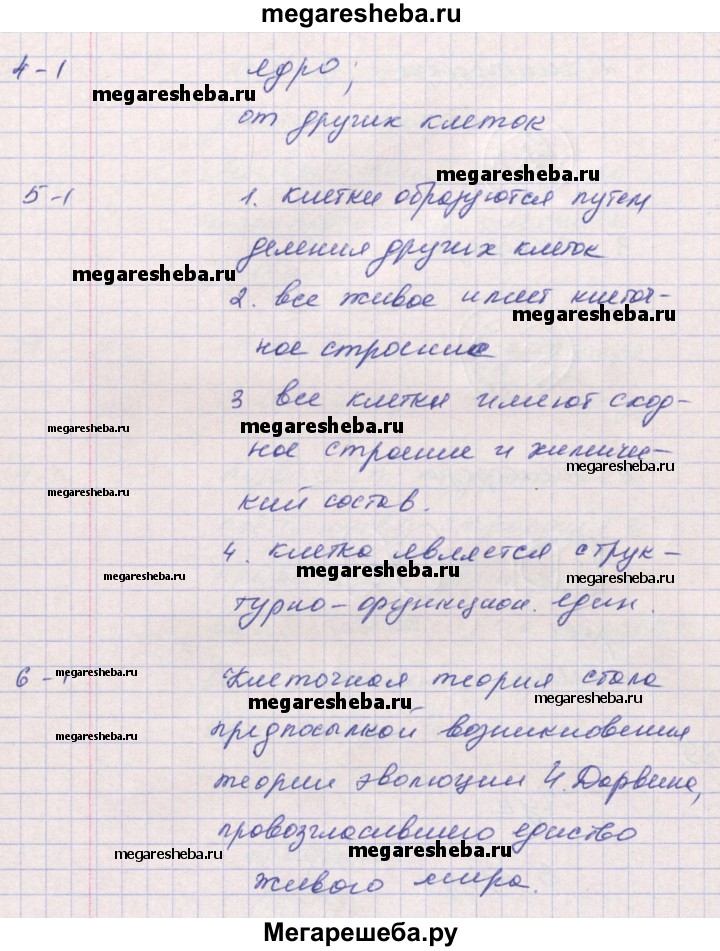 megaresheba.ru
4-1 ядро;
megaresheba.ru
от других клеток
megaresheba.ru
5-1 1. клетки образуются путем
деления других клеток
megaresheba.ru
2. все живое имеет клеточ-
megaresheba.ru
ное строение
3 все клетки имеют сход-
megaresheba.ru megaresheba.ru
ное строение и химиче-
megaresheba.ru
megaresheba.ru
кий состав.
4. клетка является струк-
megaresheba.ru megaresheba.ru megaresheba.ru
турно-функцион. един.
6-1 Клеточная теория стала
megaresheba.ru
megaresheba.ru megaresheba.ru
предпосылкой возникновения
megaresheba.ru
теории эволюции Ч. Дарвина,
провозгласившего едиство
megaresheba.ru megaresheba.ru
живого мира.
Мегарешеба.ру